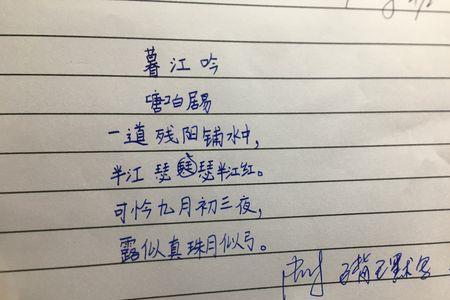 暮江吟
[唐]白居易
一道残阳铺水中，
半江瑟瑟半江红。
可怜九月初三夜，
露似真珠月似弓。
已背已默写